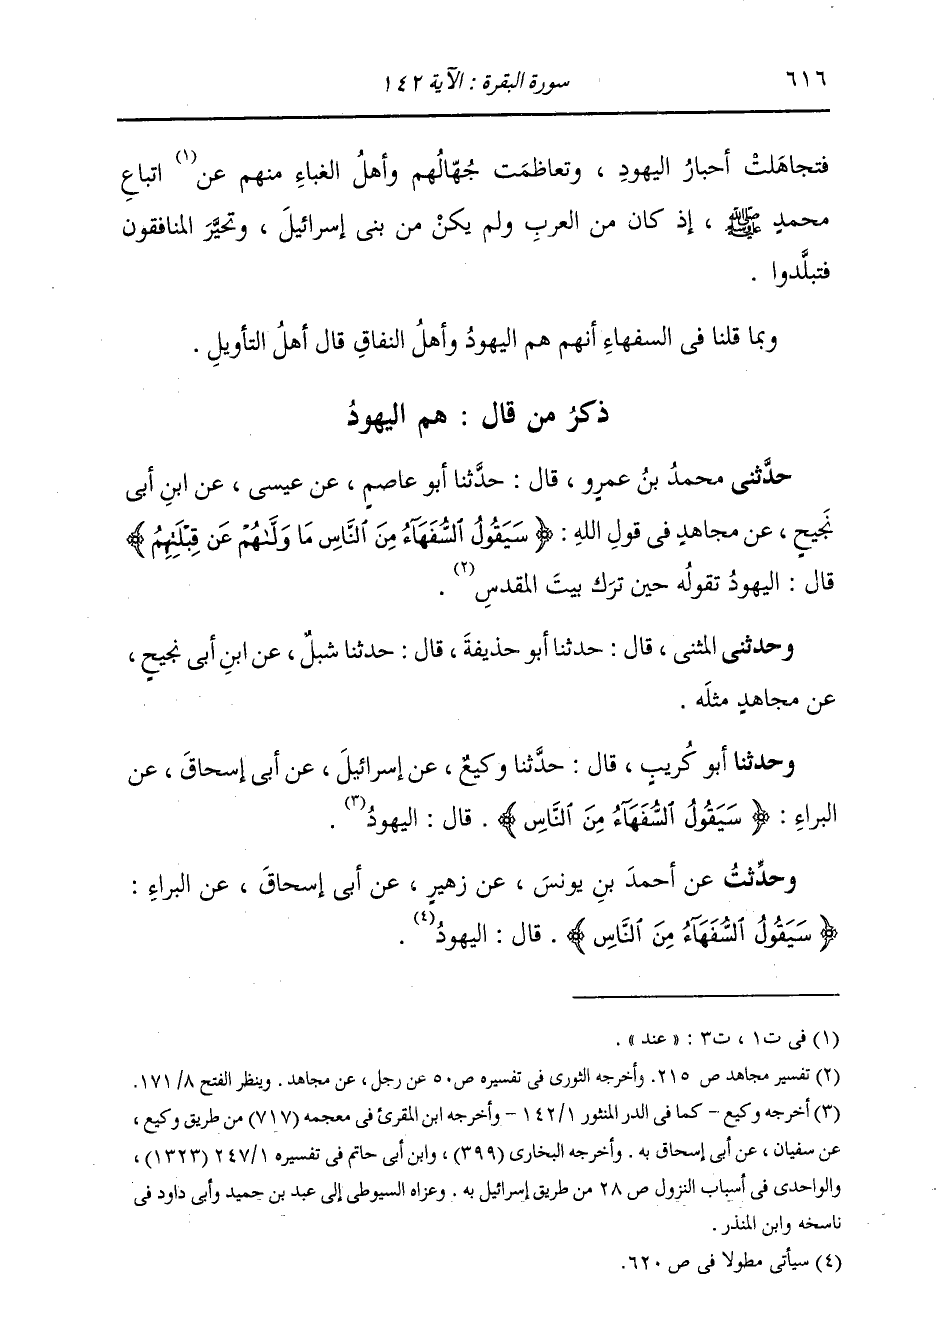 ٦١٦ سورة البقرة : الآية ١٤٢
فتجاهَلتْ أحبارُ اليهودِ ، وتعاظمَت جُهّالُهم وأهلُ الغباءِ منهم عن(١) اتباعِ
محمدٍ ﷺ ، إذ كان من العربِ ولم يكنْ من بنى إسرائيلَ ، وتحيَّر المنافقون
فتبلَّدوا .
وبما قلنا فى السفهاءِ أنهم هم اليهودُ وأهلُ النفاقِ قال أهلُ التأويلِ .
ذكرُ من قال : هم اليهودُ
حدَّثنى محمدُ بنُ عمرٍو ، قال : حدَّثنا أبو عاصمٍ ، عن عيسى ، عن ابنِ أبى
نَجيحٍ ، عن مجاهدٍ فى قولِ اللهِ : ﴿ سَيَقُولُ ٱلسُّفَهَآءُ مِنَ ٱلنَّاسِ مَا وَلَّىٰهُمْ عَن قِبْلَتِهِمُ ﴾
قال : اليهودُ تقولُه حين ترَك بيتَ المقدسِ(٢) .
وحدثنى المثنى ، قال : حدثنا أبو حذيفةَ ، قال : حدثنا شبلٌ ، عن ابنِ أبى نجيحٍ ،
عن مجاهدٍ مثلَه .
وحدثنا أبو كُريبٍ ، قال : حدَّثنا وكيعٌ ، عن إسرائيلَ ، عن أبى إسحاقَ ، عن
البراءِ : ﴿ سَيَقُولُ ٱلسُّفَهَآءُ مِنَ ٱلنَّاسِ ﴾ . قال : اليهودُ(٣) .
وحدِّثتُ عن أحمدَ بنِ يونسَ ، عن زهيرٍ ، عن أبى إسحاقَ ، عن البراءِ :
﴿ سَيَقُولُ ٱلسُّفَهَآءُ مِنَ ٱلنَّاسِ ﴾ . قال : اليهودُ(٤) .
(١) فى ت١ ، ت٣ : « عند » .
(٢) تفسير مجاهد ص ٢١٥. وأخرجه الثورى فى تفسيره ص٥٠ عن رجل ، عن مجاهد . وينظر الفتح ٨/ ١٧١.
(٣) أخرجه وكيع – كما فى الدر المنثور ١٤٢/١ – وأخرجه ابن المقرئ فى معجمه (٧١٧) من طريق وكيع ،
عن سفيان ، عن أبى إسحاق به . وأخرجه البخارى (٣٩٩) ، وابن أبى حاتم فى تفسيره ٢٤٧/١ (١٣٢٣) ،
والواحدى فى أسباب النزول ص ٢٨ من طريق إسرائيل به . وعزاه السيوطى إلى عبد بن حميد وأبى داود فى
ناسخه وابن المنذر .
(٤) سيأتى مطولا فى ص ٦٢٠.